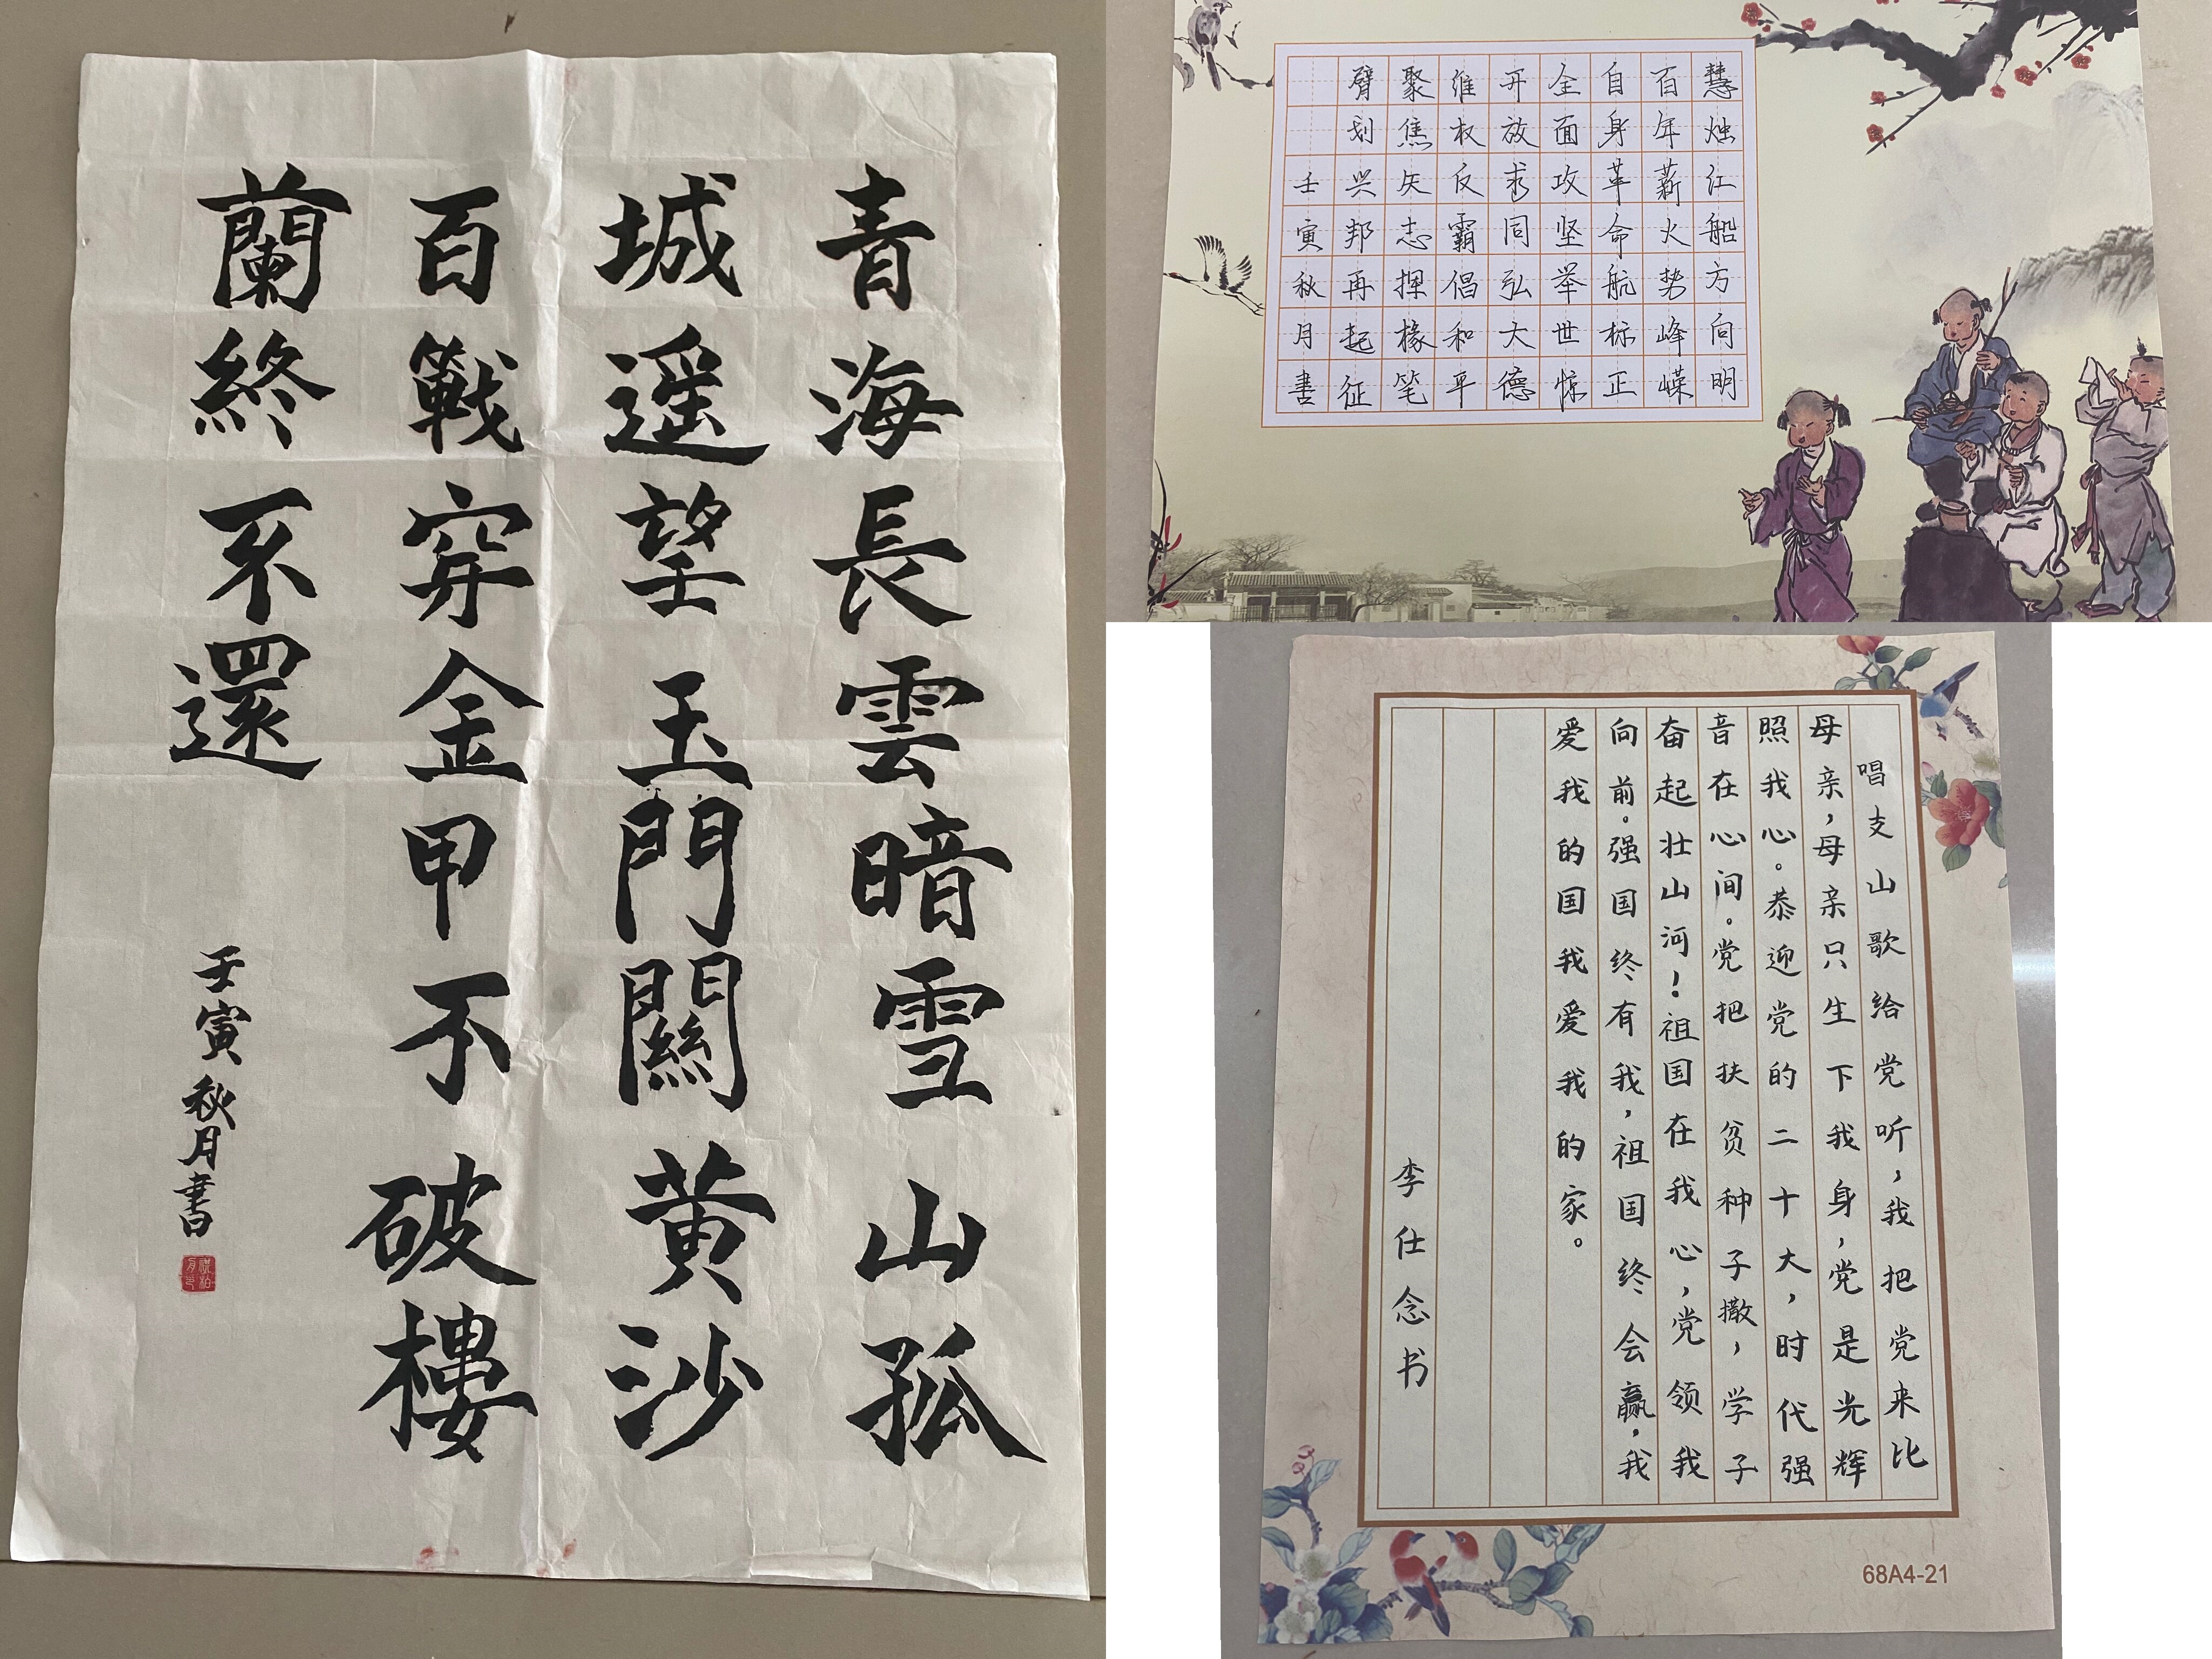 青海長雲暗雪山孤
城遥望玉門關黄沙
百戰穿金甲不破樓
蘭終不還
壬寅秋月書
慧烛红船方向明
百年薪火势峰嵘
自身革命航标正
全面攻坚举世惊
开放求同弘大德
维权反霸倡和平
聚焦矢志挥椽笔
臂划兴邦再起征
壬寅秋月書
唱支山歌给党听,我把党来比
母亲,母亲只生下我身,党是光辉
照我心。恭迎党的二十大,时代强
音在心间。党把扶贫种子撒,学子
奋起壮山河!祖国在我心,党领我
向前。强国终有我,祖国终会赢,我
爱我的国我爱我的家。
李仕念书
68A4-21